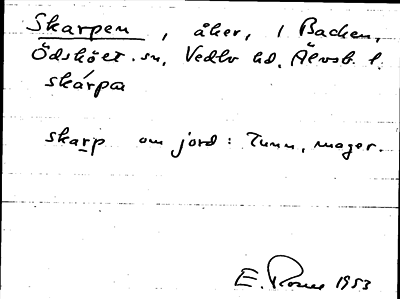 Skarpen, åker, i Backen,
Ödsköet. sn, Vedbo hd. Älvsb. l.
skárpa
skarp om jord: Tunn, mager.
E. 1953